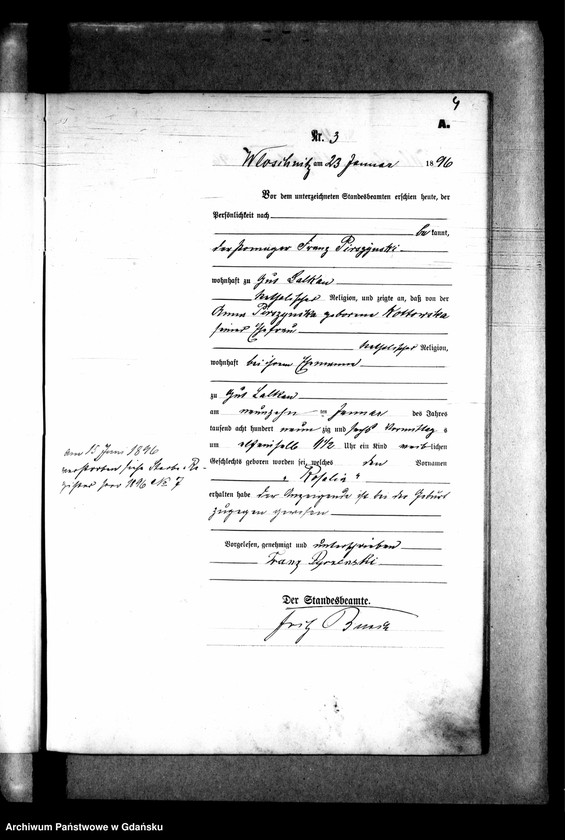 4
A.
Nr. 3
Wloschnitz am 23 Januar 1896
Vor dem unterzeichneten Standesbeamten erschien heute, der
Persönlichkeit nach
be kannt,
der Franz Pirszynski
wohnhaft zu Gut Lalkau
katholischer Religion, und zeigte an, daß von der
Anna Pirszynska geborene Kottowska
seiner Ehefrau
katholischer Religion,
wohnhaft bei ihrem Ehemanne
zu Gut Lalkau
am neunzehn ten Januar des Jahres
tausend acht hundert neun zig und sechs Vormittag s
um Uhr ein Kind weib lichen
Geschlechts geboren worden sei, welches den Vornamen
„Rosalia“
erhalten habe der Anzeigende ist bei der Geburt
zugegen gewesen
am 15 Juni 1896
verstorben siehe Sterbe-Re-
gister pro 1896 No 7
Vorgelesen, genehmigt und unterschrieben
Franz
Der Standesbeamte.
Fritz
Archiwum Państwowe w Gdańsku